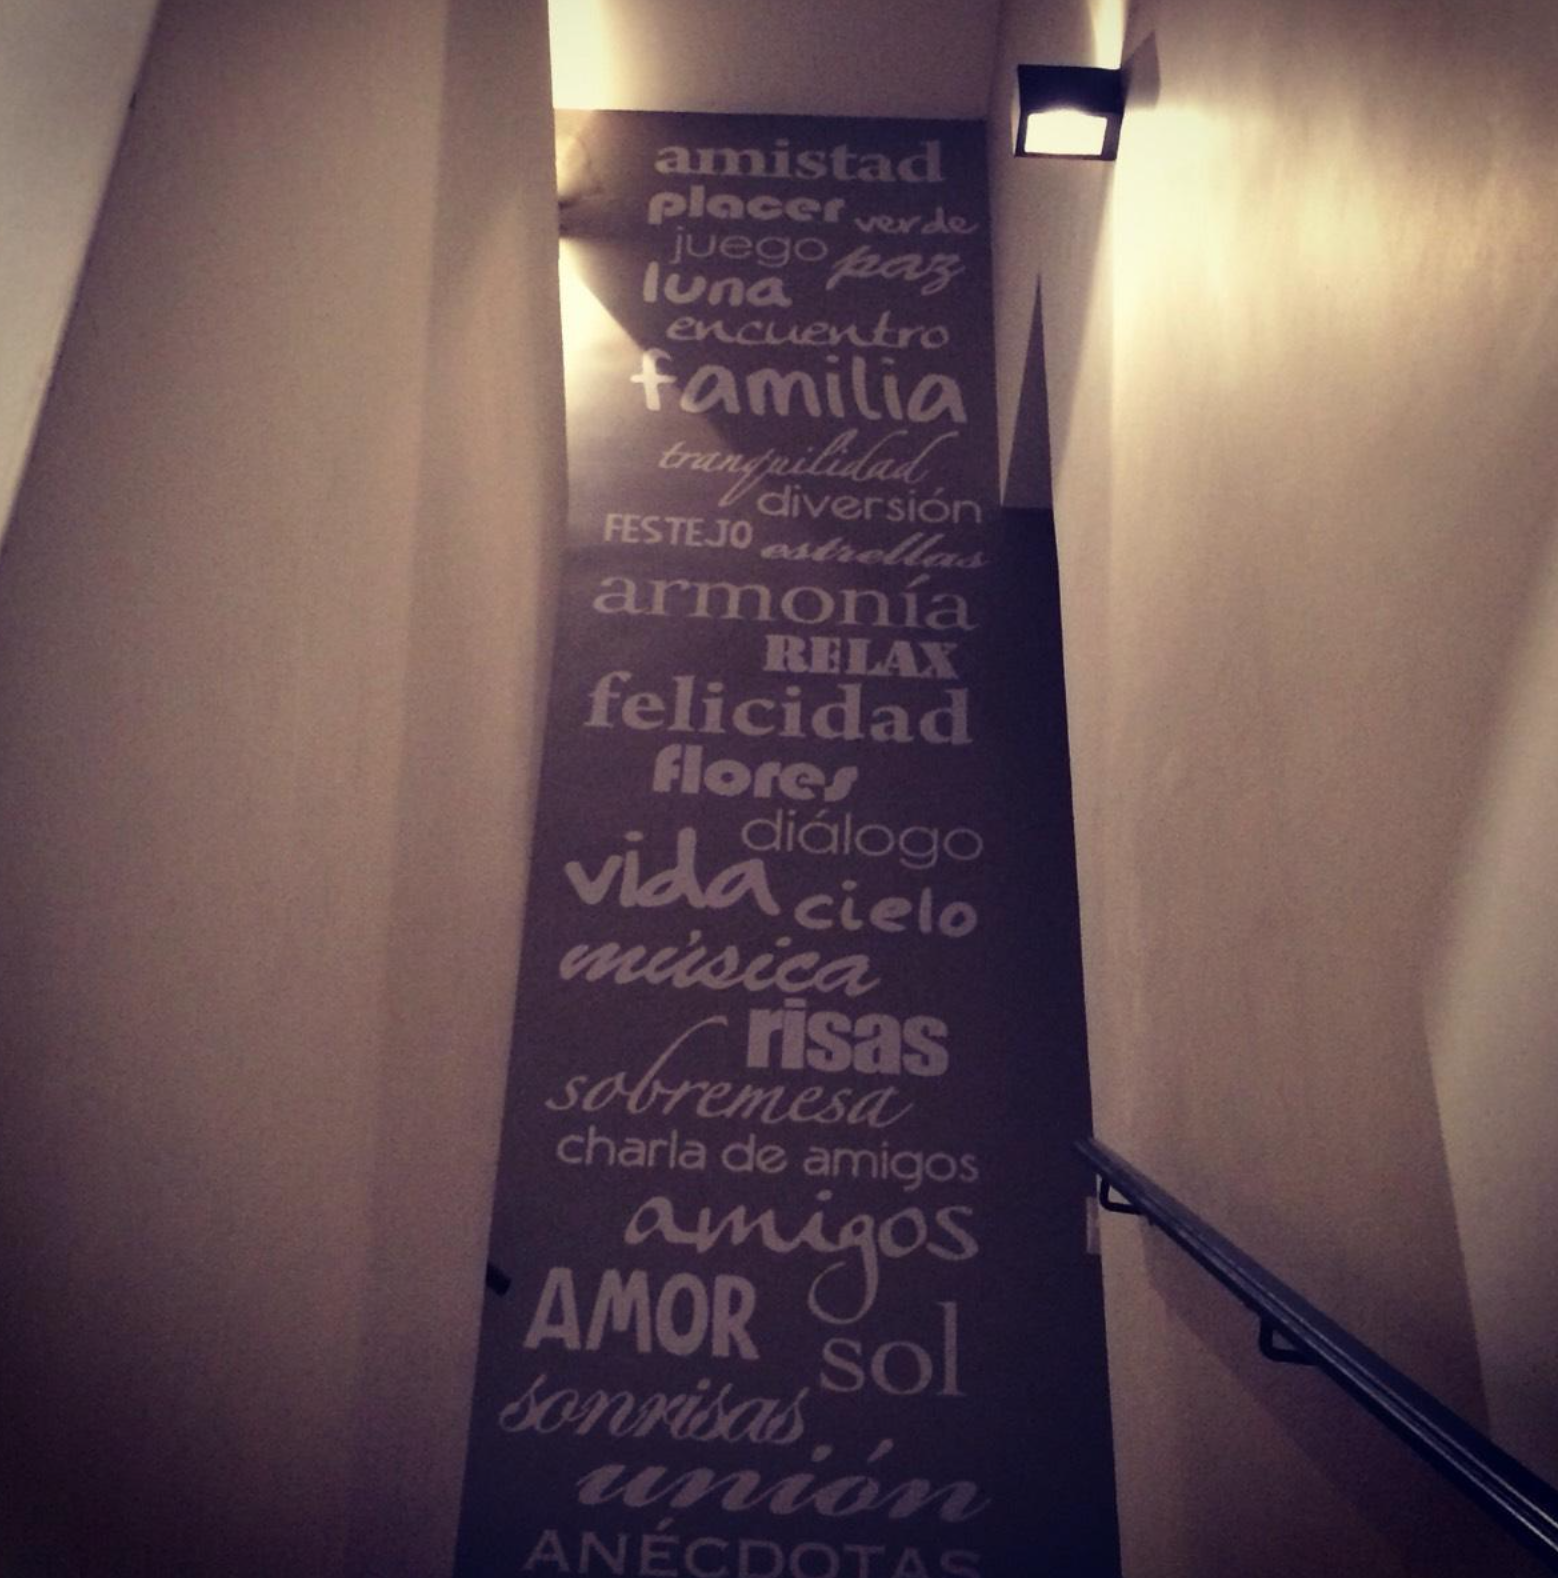 amistad
placer verde
juego paz
luna
encuentro
familia
tranquilidad
diversión
FESTEJO estrellas
armonía
RELAX
felicidad
flores
diálogo
vida cielo
música
risas
sobremesa
charla de amigos
amigos
AMOR sol
sonrisas
unión
ANÉCDOTAS